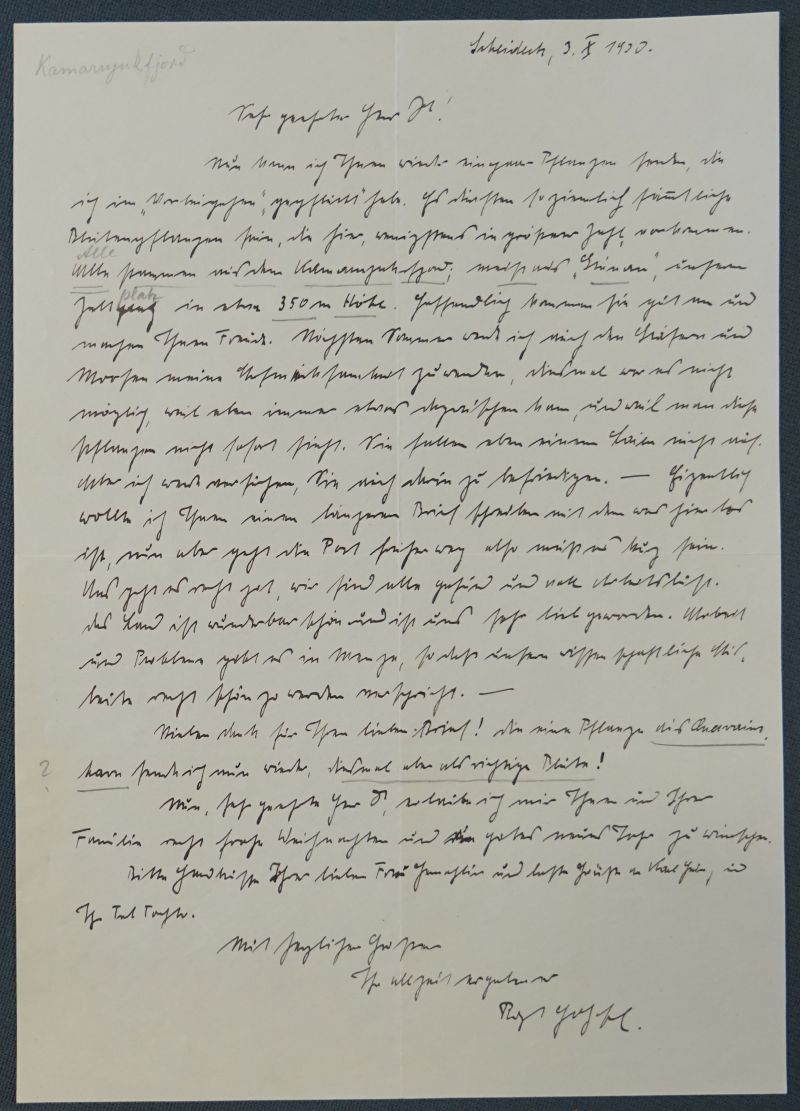 Kamarujukfjord
Scheideck, 3. X 1930.
Sehr geehrter Herr Dr!
Nun kann ich Ihnen wieder einige Pflanzen senden, die
ich im „Vorbeigehen", gepflückt habe. Es dürften so ziemlich sämtliche
Blütenpflanzen sein, die hier, wenigstens in größerer Zahl, vorkommen.
Alle
Alle stammen aus dem Kamarujukfjord, meist aus „Grünau", unserm
platz
Zelt in etwa 350 m Höhe. Hoffentlich kommen sie gut an und
machen Ihnen Freude. Nächsten Sommer werde ich auch den Gräsern und
Moosen meine Aufmerksamkeit zuwenden, diesmal war es nicht
möglich, weil eben immer etwas dazwischen kam, und weil man diese
Pflanzen nicht sofort sieht. Sie fallen eben einem Laien nicht auf.
Aber ich werde versuchen, Sie auch darin zu befriedigen. — Eigentlich
wollte ich Ihnen einen längeren Brief schreiben mit dem was hier los
ist, nun aber geht die Post früher weg also muß es kurz sein.
Uns geht es recht gut, wir sind alle gesund und voll Arbeitslust.
Das Land ist wunderbar schön und ist uns sehr lieb geworden. Arbeit
und Probleme gibt es in Menge, so daß unsere wissenschaftliche Aus-
beute recht schön zu werden verspricht. —
Vielen Dank für Ihren lieben Brief! Die eine Pflanze aus
? sende ich nun wieder, diesmal aber als richtige Blüte!
Nun, sehr geehrter Herr Dr, erlaube ich mir Ihnen und Ihrer
Familie recht frohe Weihnachten und ein gutes neues Jahr zu wünschen.
Bitte Ihrer lieben Frau Gemahlin und beste Grüße an
Ihr Frl Tochter.
Mit herzlichen Grüßen
Ihr allzeit ergebener